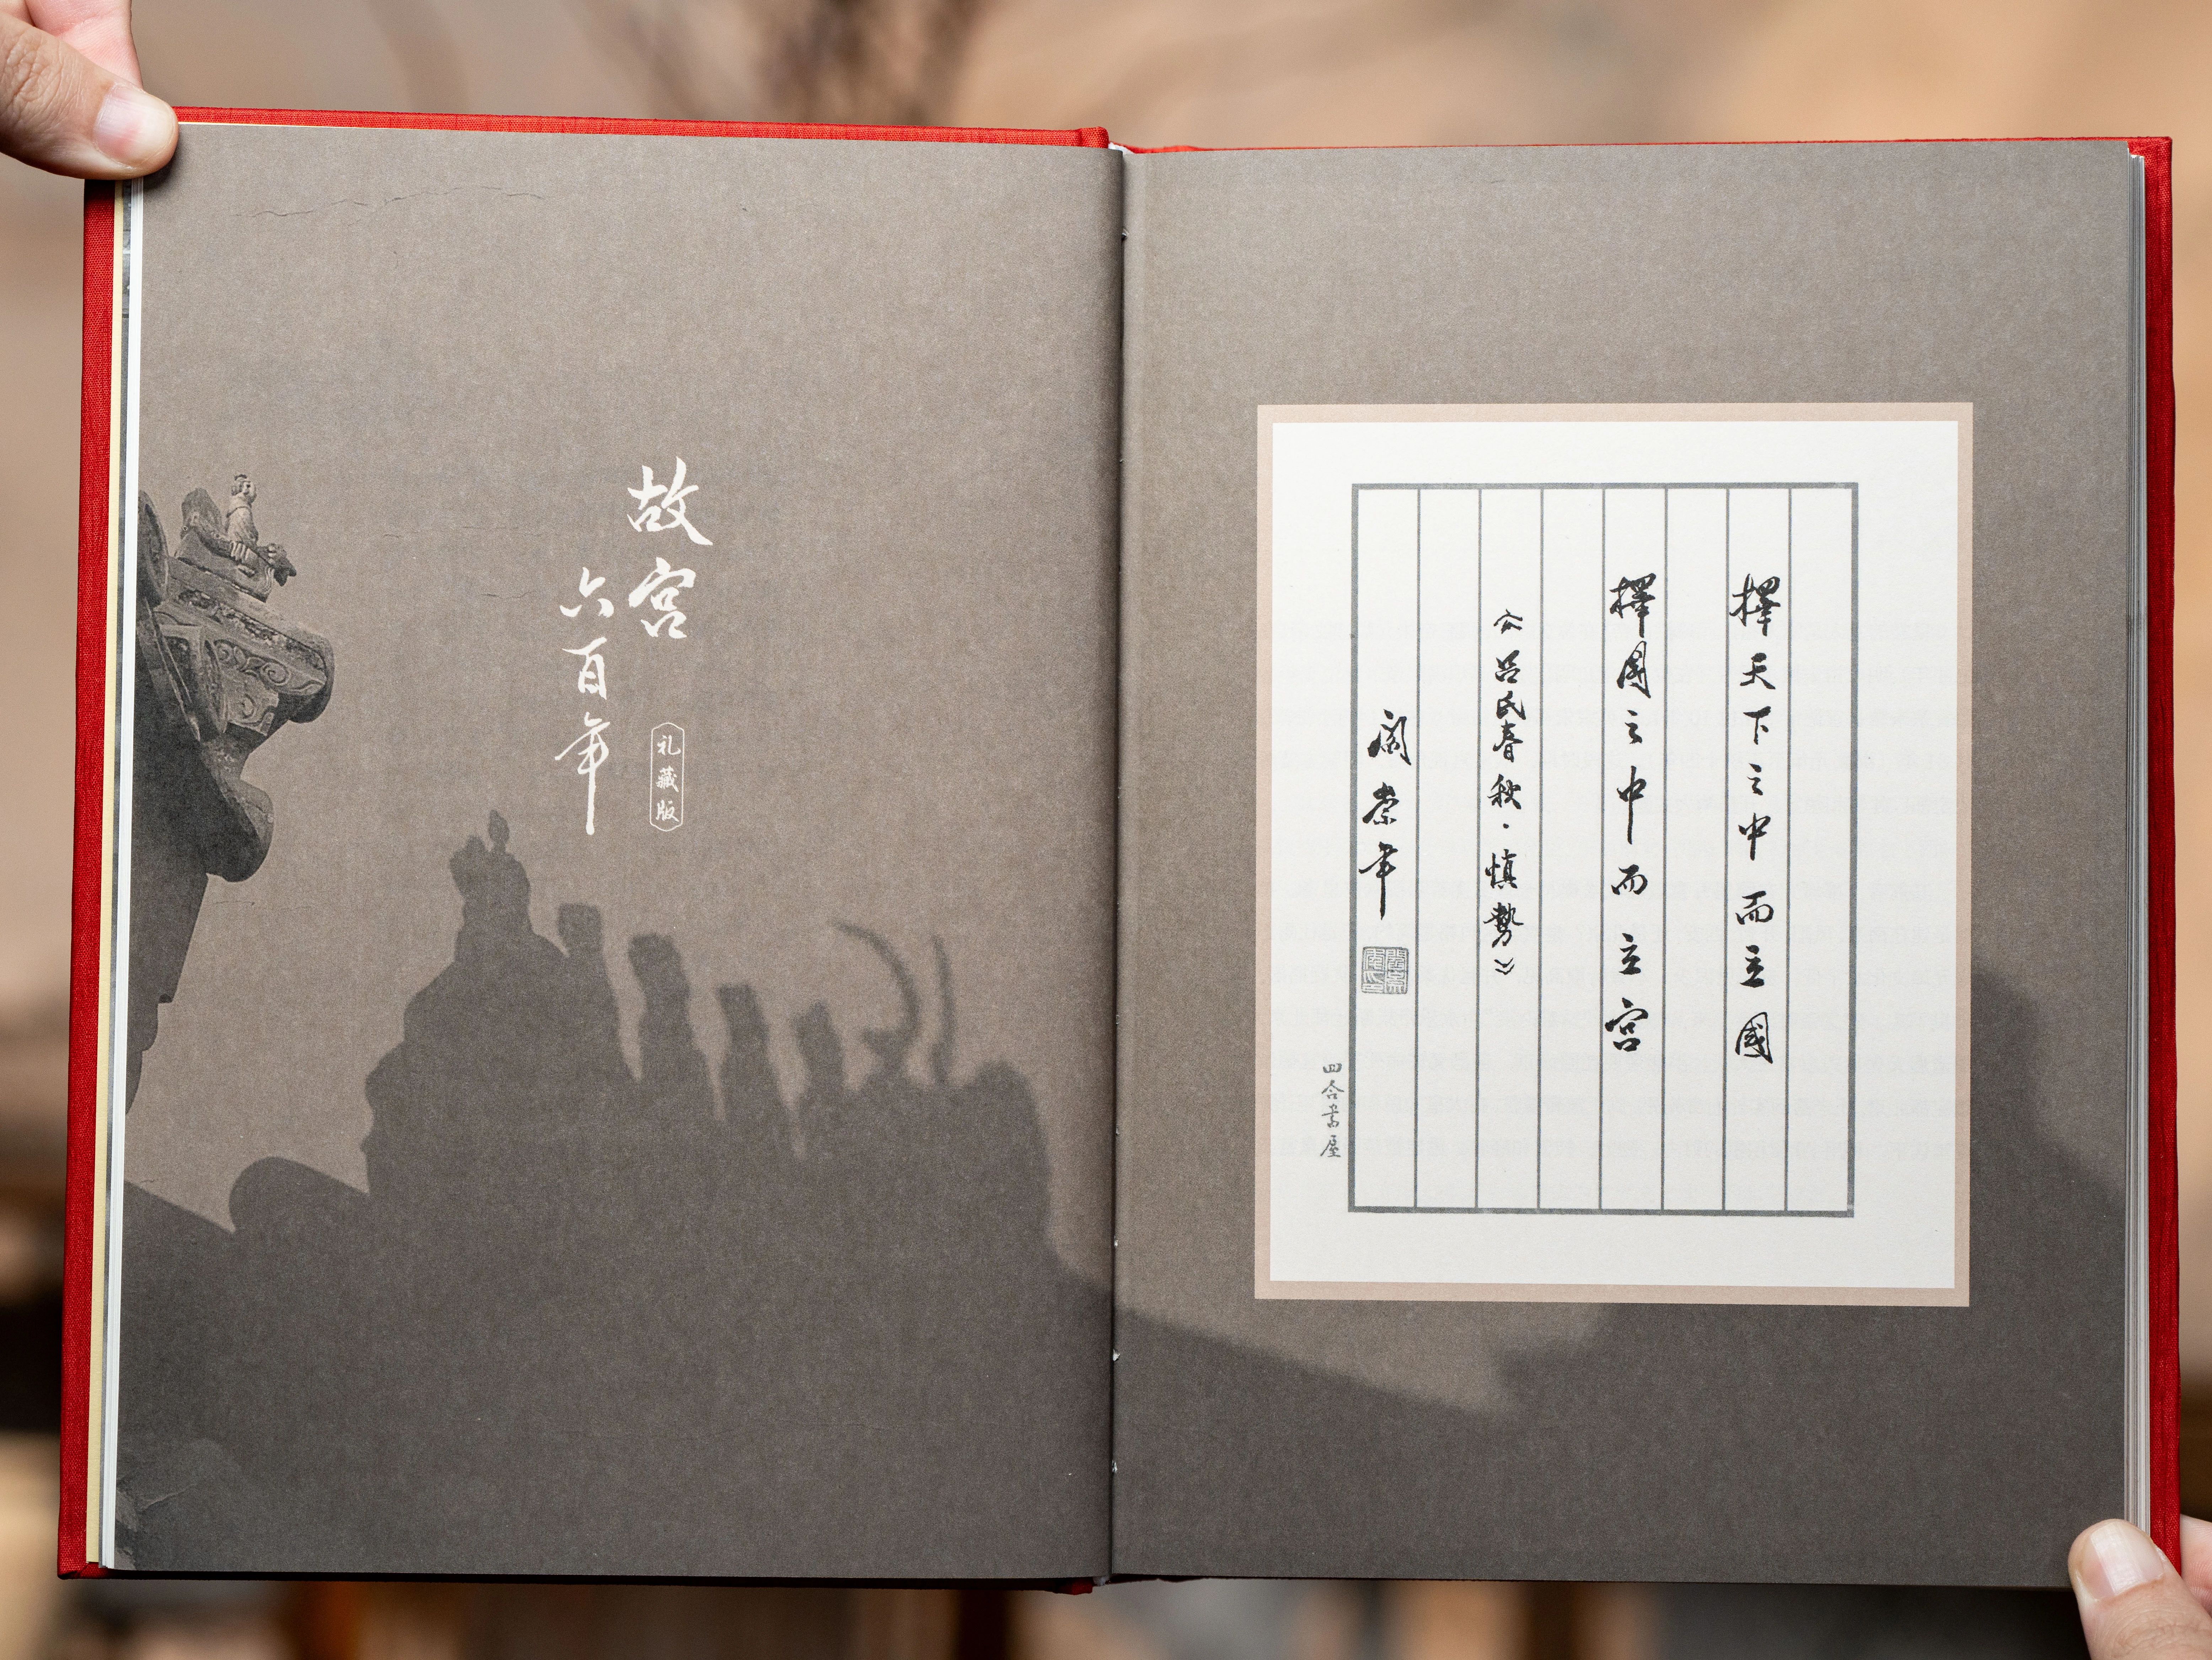 故宫
六百年
礼藏版
擇天下之中而立國
擇國之中而立宮
《吕氏春秋·慎勢》
阎崇年
四合書屋